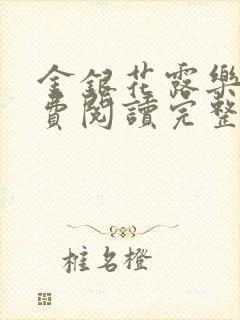 金銀花露樂
費閱讀完整
椎名橙